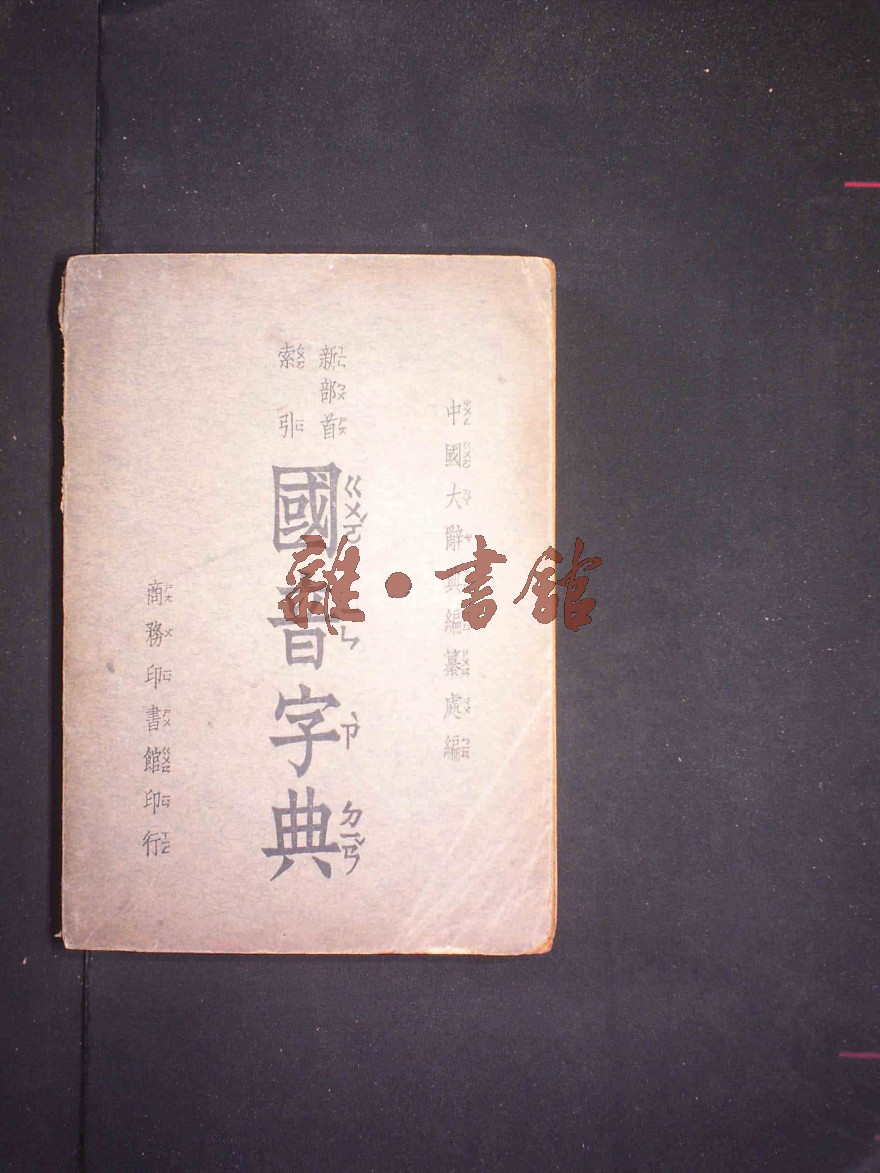 中國大辭典編纂處編
新部首
索引
國音字典
ㄍㄨㄛˊ ㄣ ㄗˋ ㄉㄧㄢˇ
商務印書館印行
雜·書館